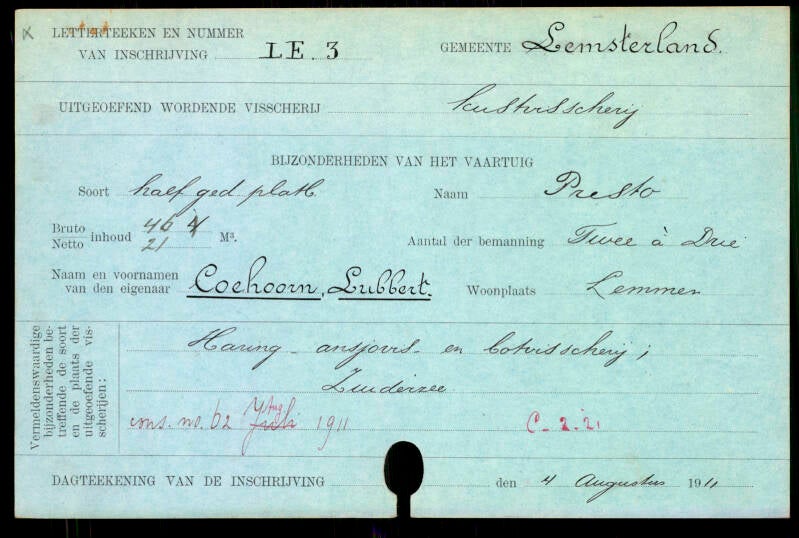 LETTERTEEKEN EN NUMMER
VAN INSCHRIJVING LE. 3 GEMEENTE Lemsterland.
UITGEOEFEND WORDENDE VISSCHERIJ Kustvisscherij
BIJZONDERHEDEN VAN HET VAARTUIG
Soort half ged platb. Naam Presto
Bruto 46
Netto inhoud 21 M³. Aantal der bemanning Twee à Drie
Naam en voornamen
van den eigenaar Coehoorn, Lubbert. Woonplaats Lemmer
Vermeldenswaardige
bijzonderheden be-
treffende de soort
en de plaats der
uitgeoefende vis-
scherijen:
Haring- ansjovis- en botvisscherij;
Zuiderzee
cons. no. 62 Juli 1911 C- 2.21
DAGTEEKENING VAN DE INSCHRIJVING den 4 Augustus 1911